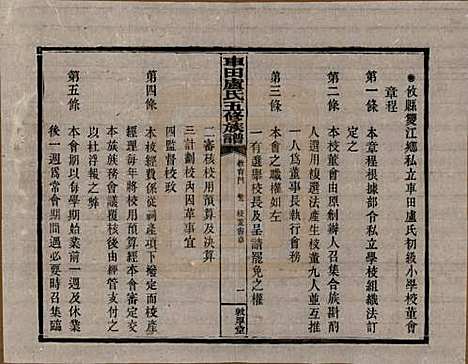 攸縣雙江鄉私立車田盧氏初級小學校董會
章程
第一條 本章程根據部令私立學校組織法訂
定之
第二條 本校董會由原創辦人召集合族斟酌
人選用複選法產生校董九人並互推
一人爲董事長執行會務
第三條 本會之職權如左
一有選舉校長及呈請罷免之權
車田盧氏五修族譜
教育門
一
敦厚堂
二審核校用預算及決算
三計劃校內因革事宜
四監督校政
第四條 本校經費係從祠產項下撥定而校產
經理每年將校用預算經本會審定後交
本族族務會議覆核後由經管支付之
以杜浮報之弊
第五條 本會開會期每學期始業前一週及休業
後一週爲常會期間遇必要時召集臨